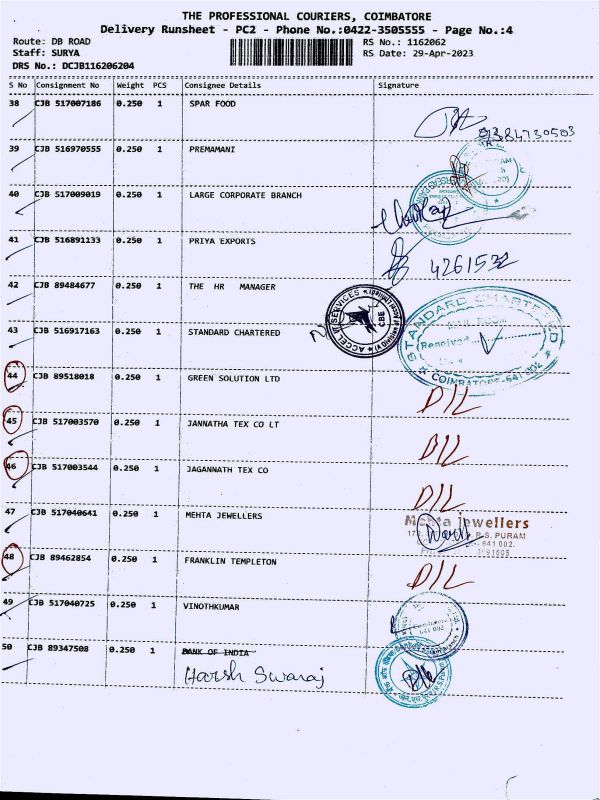 THE PROFESSIONAL COURIERS, COIMBATORE
Delivery Runsheet - PC2 - Phone No.:0422-3505555 - Page No.:4
Route: DB ROAD RS No.: 1162062
Staff: SURYA RS Date: 29-Apr-2023
DRS No.: DCJB116206204
S No Consignment No Weight PCS Consignee Details Signature
38 CJB 517007186 0.250 1 SPAR FOOD
9384730503
39 CJB 516970555 0.250 1 PREMAMANI
40 CJB 517009019 0.250 1 LARGE CORPORATE BRANCH
41 CJB 516891133 0.250 1 PRIYA EXPORTS
4261532
42 CJB 89484677 THE HR MANAGER
ACCEL IT SERVICES
CBE
43 CJB 516917163 0.250 1 STANDARD CHARTERED
STANDARD CHARTERED
Received
COIMBATORE-641 002
44 CJB 89518018 0.250 1 GREEN SOLUTION LTD
D/L
45 CJB 517003570 0.250 1 JANNATHA TEX CO LT
D/L
46 CJB 517003544 0.250 1 JAGANNATH TEX CO
D/L
47 CJB 517040641 0.250 1 MEHTA JEWELLERS
Mehta jewellers
R.S. PURAM
641 002.
48 CJB 89462854 0.250 1 FRANKLIN TEMPLETON
D/L
49 CJB 517040725 0.250 1 VINOTHKUMAR
641 002
50 CJB 89347508 0.250 1 BANK OF INDIA
Harsh Swaraj